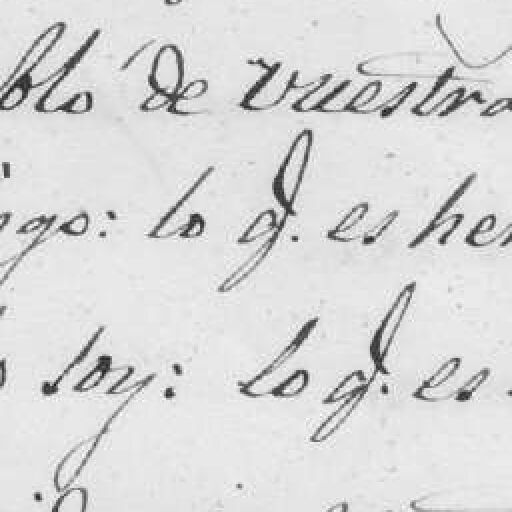 bló de vuestra
igo: lo q. es her
o soy: lo q. es